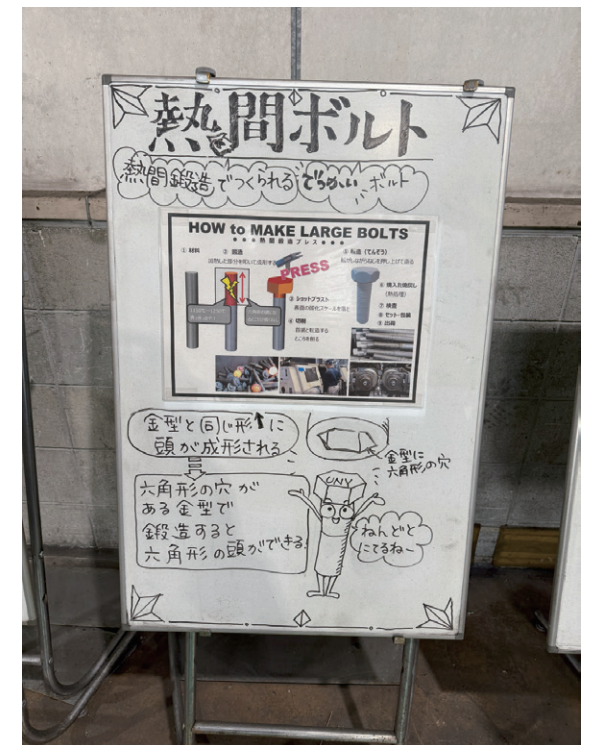 熱間ボルト
熱間鍛造でつくられるでっかいボルト
HOW to MAKE LARGE BOLTS
●●●熱間鍛造プレス●●●
① 材料
② 鍛造
PRESS
③ ショットブラスト
④ 切削
⑤ 転造（てんぞう）
⑥ 焼入れ焼戻し
（熱処理）
⑦ 検査
⑧ セット・包装
⑨ 出荷
金型と同じ形に
頭が成形される
金型に
六角形の穴
六角形の穴が
ある金型で
鍛造すると
六角形の頭ができる
UNY
ねんどと
にてるねー